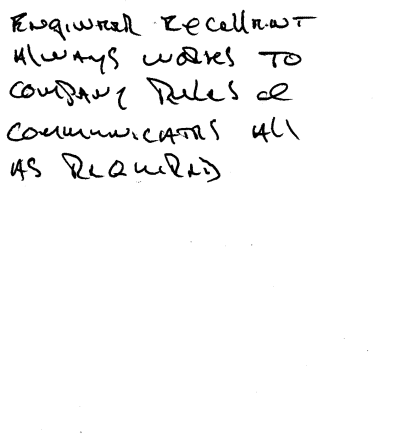 ENGINEER EXCELLENT
ALWAYS WORKS TO
COMPANY RULES &
COMMUNICATES All
AS REQUIRED